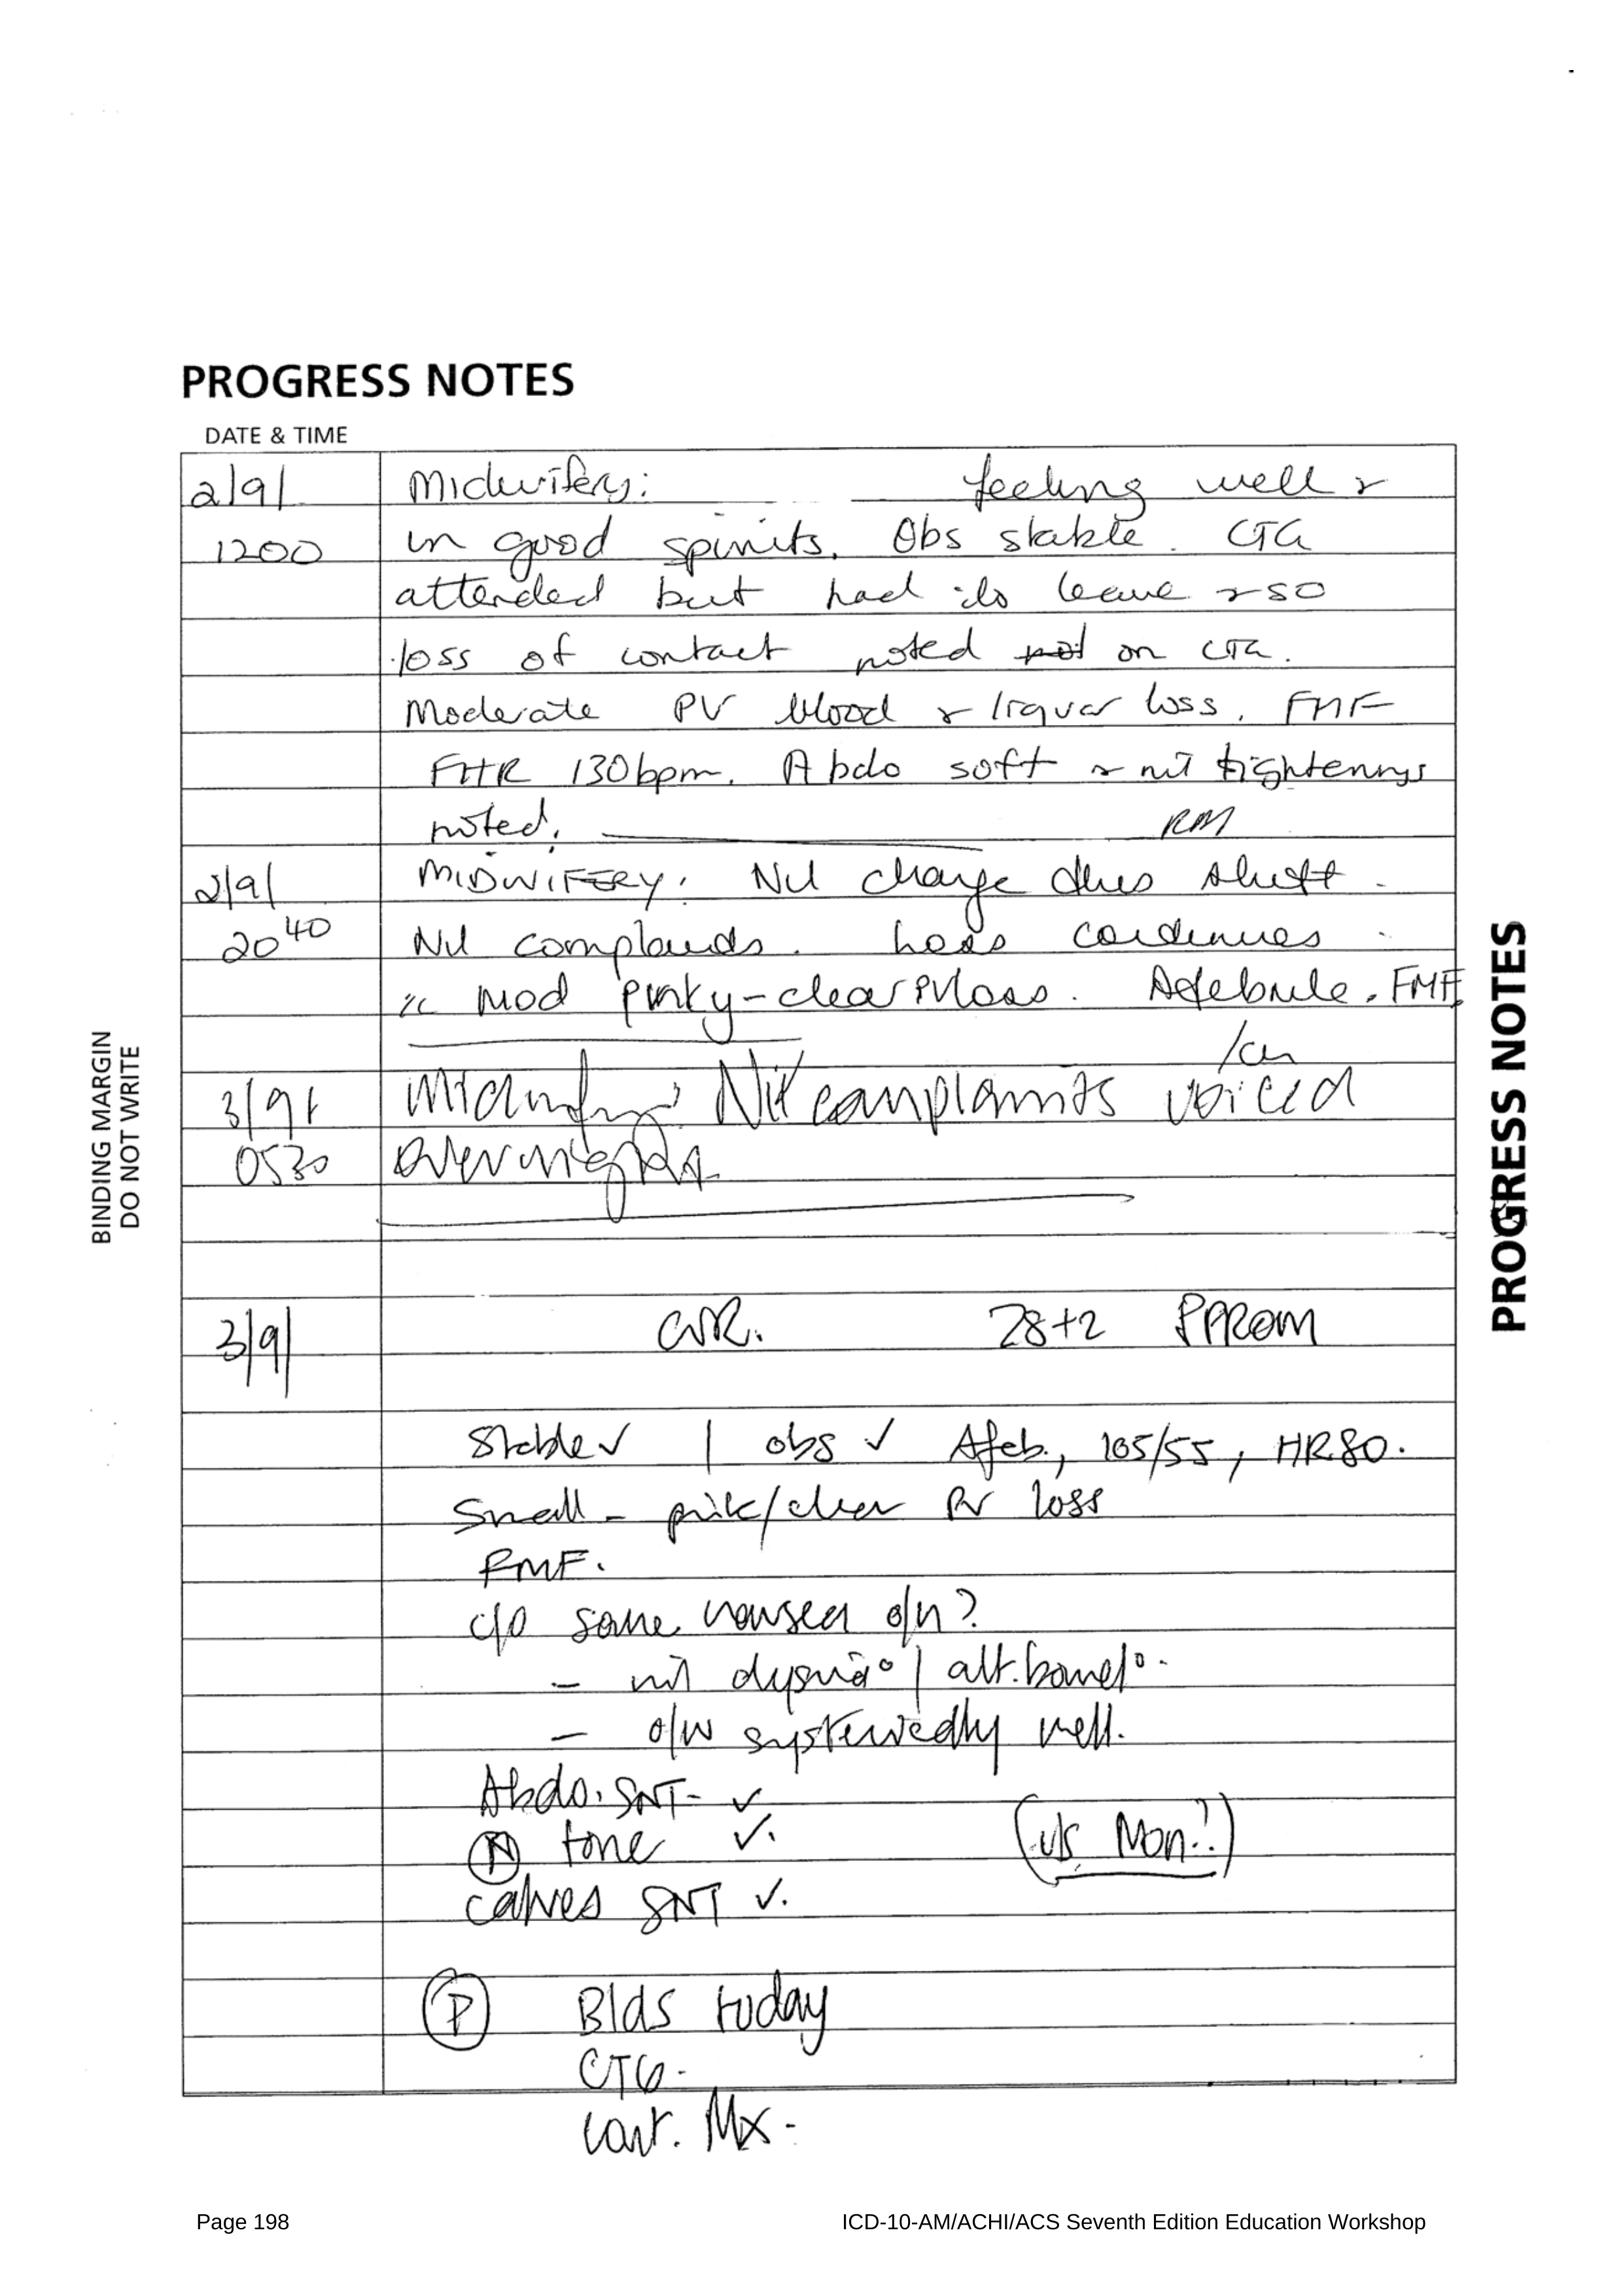 PROGRESS NOTES
DATE & TIME
2/9/ Midwifery: feeling well &
1200 in good spirits. Obs stable. CTG
attended but had to leave & so
loss of contact noted not on CTG.
Moderate PV blood & liquor loss. FMF
FHR 130bpm. Abdo soft & nil tightenings
noted. RM
2/9/ MIDWIFERY: Nil change this shift.
20 40 Nil complaints. Loss continues
mod pinky-clear PV loss. Afebrile. FMF
3/9/ Midwifery: Nil complaints voiced
0530 overnight.
BINDING MARGIN
DO NOT WRITE
PROGRESS NOTES
3/9/ 28+2 PPROM
Stable ✓ | obs ✓ Afeb., 105/55, HR80.
Small - pink/clear PV loss
FMF.
c/o some nausea o/n?
- nil dysuria° | alt. bowel°.
- o/w systemically well.
Abdo. SNT- ✓
(N) tone ✓. (u/s Mon?)
calves SNT ✓.
(P) Blds today
CTG.
cont. Mx-
Page 198 ICD-10-AM/ACHI/ACS Seventh Edition Education Workshop